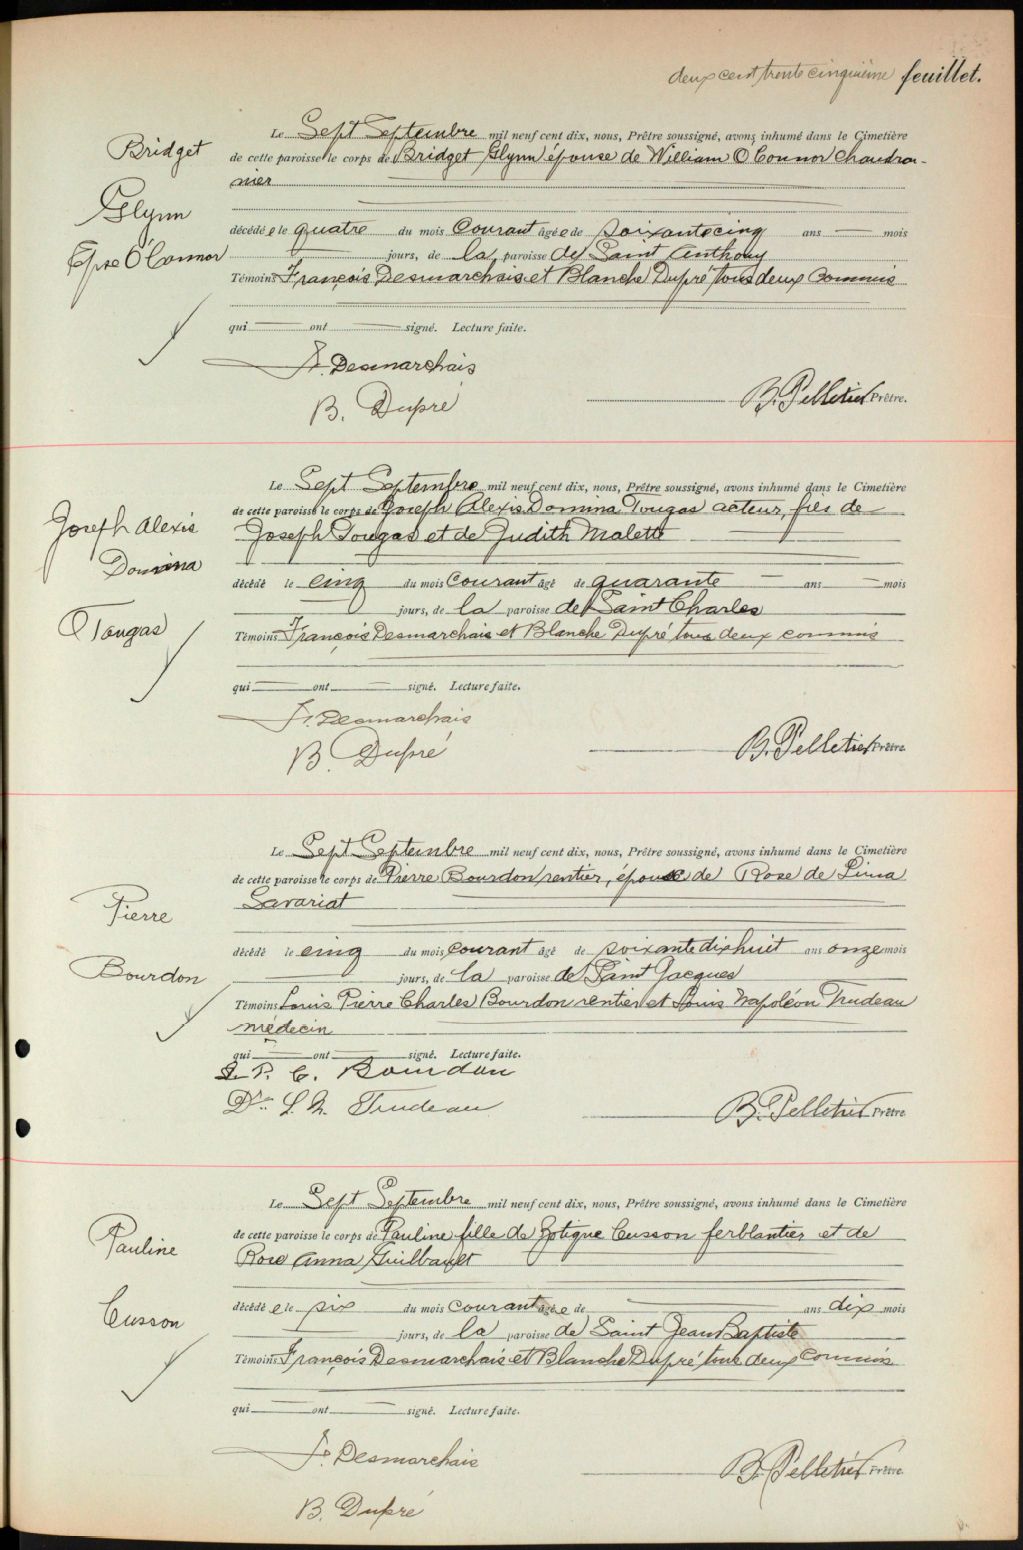 deux cent trente cinquième feuillet.
Bridget
Glynn
Epse O'Connor
Le Sept Septembre mil neuf cent dix, nous, Prêtre soussigné, avons inhumé dans le Cimetière
de cette paroisse le corps de Bridget Glynn épouse de William O'Connor chaudron-
nier
décédée le quatre du mois courant âgée de soixante cinq ans — mois
jours, de la paroisse de Saint Anthony
Témoins François Desmarchais et Blanche Dupré tous deux commis
qui — ont — signé. Lecture faite.
F. Desmarchais
B. Dupré
B. Pelletier Prêtre.
Joseph Alexis
Domina
Tougas
Le Sept Septembre mil neuf cent dix, nous, Prêtre soussigné, avons inhumé dans le Cimetière
de cette paroisse le corps de Joseph Alexis Domina Tougas acteur, fils de
Joseph Tougas et de Judith Malette
décédé le cinq du mois courant âgé de quarante — ans — mois
jours, de la paroisse de Saint Charles
Témoins François Desmarchais et Blanche Dupré tous deux commis
qui — ont — signé. Lecture faite.
F. Desmarchais
B. Dupré
B. Pelletier Prêtre.
Pierre
Bourdon
Le Sept Septembre mil neuf cent dix, nous, Prêtre soussigné, avons inhumé dans le Cimetière
de cette paroisse le corps de Pierre Bourdon rentier, époux de Rose de Lima
Savariat
décédé le cinq du mois courant âgé de soixante dix huit ans onze mois
jours, de la paroisse de Saint Jacques
Témoins Louis Pierre Charles Bourdon rentier et Louis Napoléon Trudeau
médecin
qui — ont — signé. Lecture faite.
L. P. C. Bourdon
Dr. L. N. Trudeau
B. Pelletier Prêtre.
Pauline
Cusson
Le Sept Septembre mil neuf cent dix, nous, Prêtre soussigné, avons inhumé dans le Cimetière
de cette paroisse le corps de Pauline fille de Zotique Cusson ferblantier et de
Rose Anna Guilbault
décédée le six du mois courant âgée de — ans dix mois
jours, de la paroisse de Saint Jean Baptiste
Témoins François Desmarchais et Blanche Dupré tous deux commis
qui — ont — signé. Lecture faite.
F. Desmarchais
B. Dupré
B. Pelletier Prêtre.